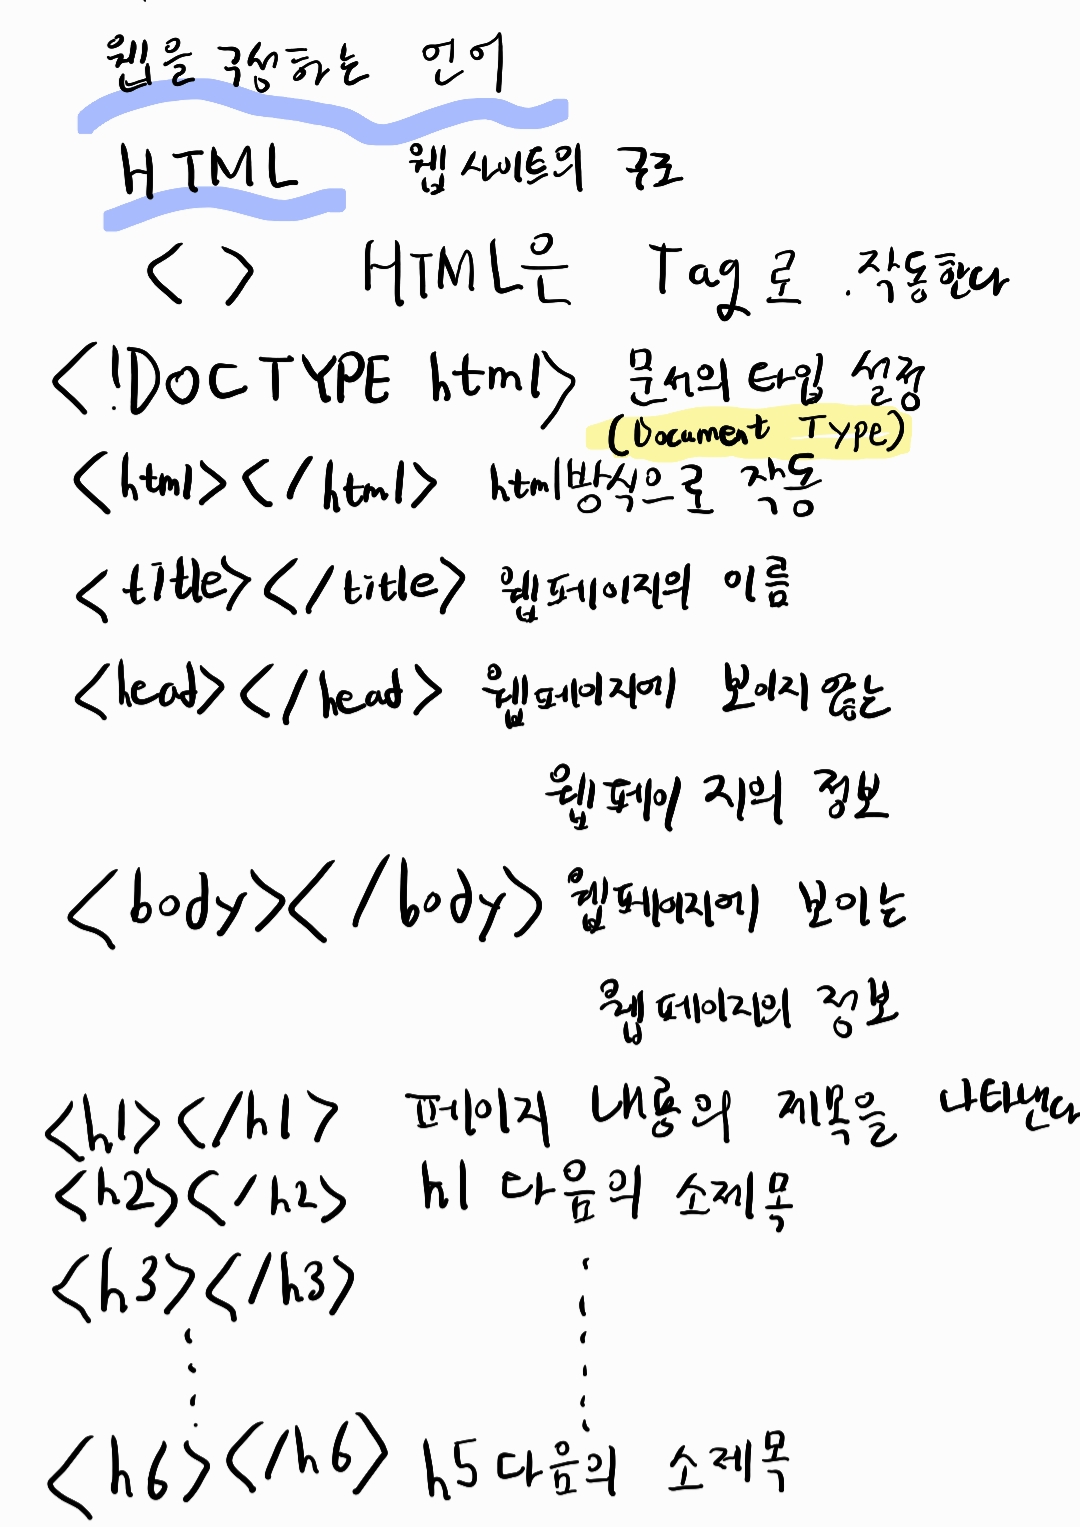 웹을 구성하는 언어
HTML 웹 사이트의 구조
< > HTML은 Tag로 작동한다
<!DOCTYPE html> 문서의 타입 설정
(Document Type)
<html></html> html방식으로 작동
<title></title> 웹페이지의 이름
<head></head> 웹페이지에 보이지 않는
웹페이지의 정보
<body></body> 웹페이지에 보이는
웹페이지의 정보
<h1></h1> 페이지 내용의 제목을 나타낸다
<h2></h2> h1 다음의 소제목
<h3></h3>
<h6></h6> h5 다음의 소제목